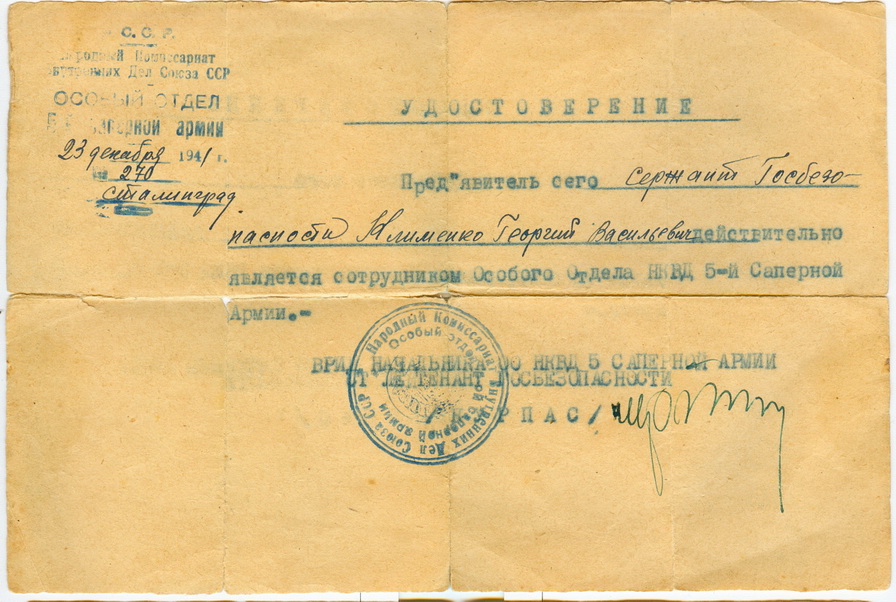 С. С. Р.
Народный Комиссариат
Внутренних Дел Союза ССР
ОСОБЫЙ ОТДЕЛ
саперной армии
23 декабря 1941 г.
270
Сталинград
УДОСТОВЕРЕНИЕ
Пред"явитель сего сержант Госбезо-
пасности Клименко Георгий Васильевич действительно
является сотрудником Особого Отдела НКВД 5-й Саперной
Армии.-
ВРИД НАЧАЛЬНИКА ОО НКВД 5 САПЕРНОЙ АРМИИ
СТ ЛЕЙТЕНАНТ ГОСБЕЗОПАСНОСТИ
Народный Комиссариат Внутренних Дел Союза ССР
Особый отдел
ой Саперной армии